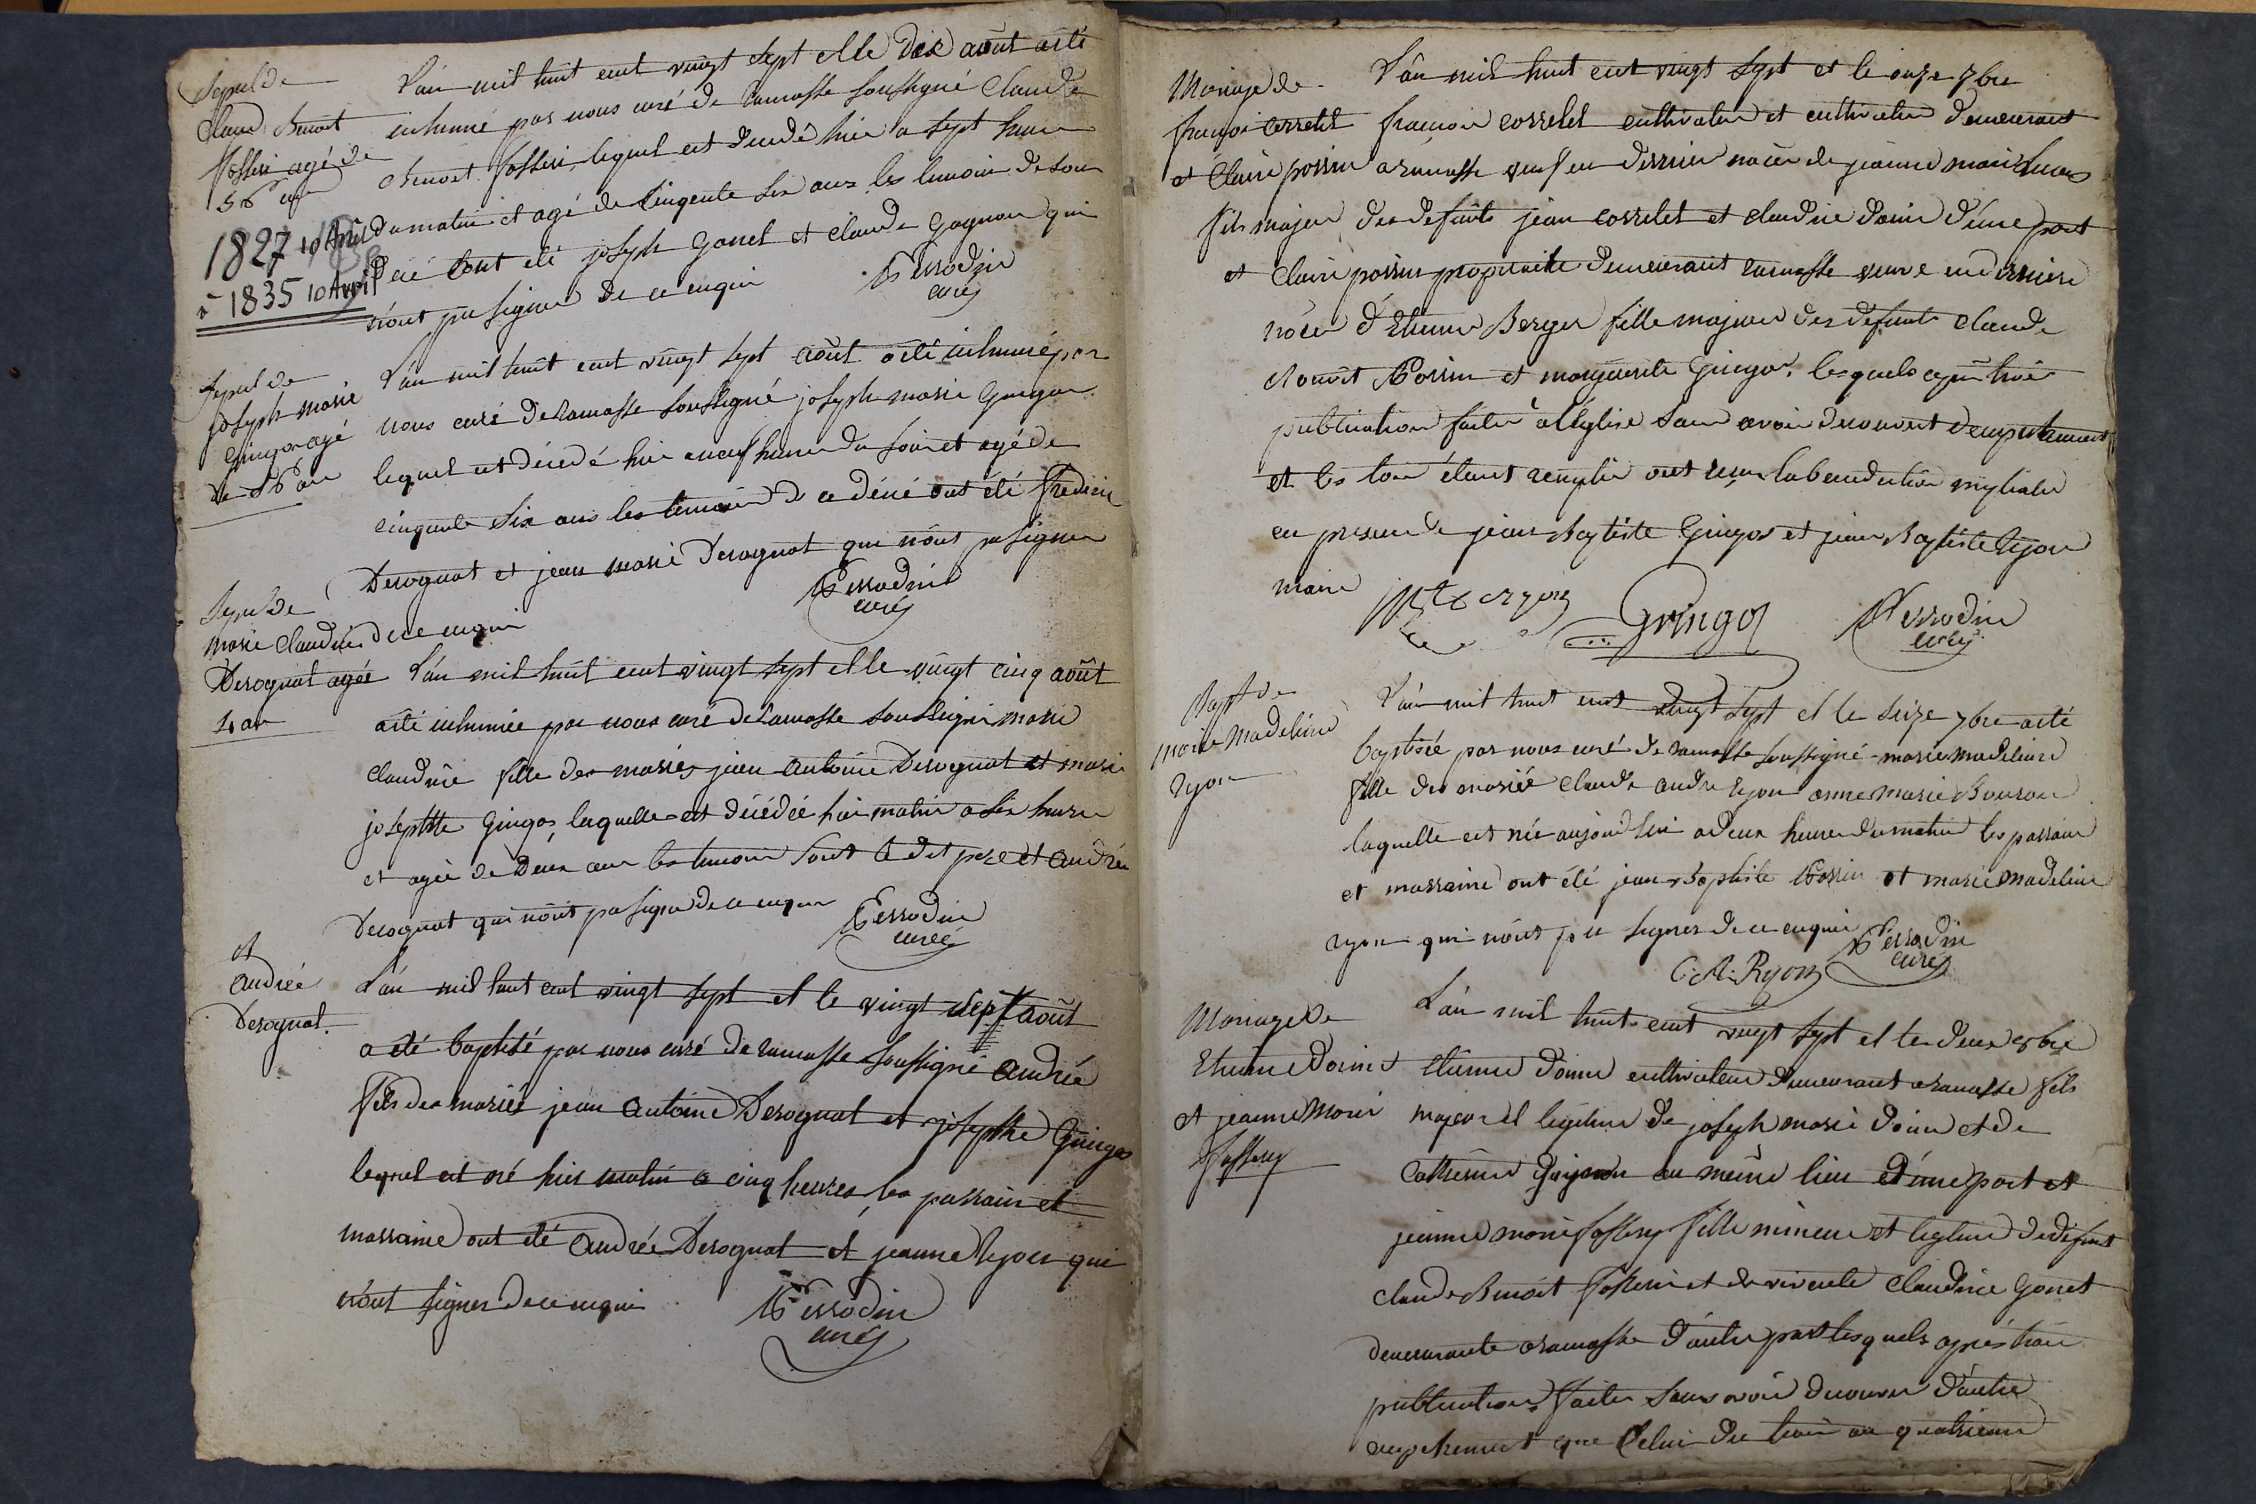 Sepul de
Claude Benoit
fosseri agé de
56 an
1827 10 Avril
à 1835 10 Avril
L'an mil huit cent vingt sept et le dix août a été
inhumé par nous curé de ramasse soussigné Claude
Benoit fosseri lequel est décédé hier a sept heure
du matin et agé de cinquente six ans les temoin de son
décé sont été joseph gonet et claude gagnon qui
n'ont pu signer de ce enquis
Perrodin
curé
Sepul de
joseph marie
gringoz agé
de 56 an
L'an mil huit cent vingt sept août a été inhumé par
nous curé de ramasse soussigné joseph marie gringoz
lequel est décédé hier a neuf heure du soir et agé de
cinquente six ans les temoin de ce décé ont été frederic
Derognat et jean marie Derognat qui n'ont pu signer
de ce enquis
Perrodin
curé
Sepul de
marie Claudine
Derognat agée
2 an
L'an mil huit cent vingt sept et le vingt cinq août
a été inhumée par nous curé de ramasse soussigné marie
claudine fille des mariés jean antoine Derognat et marie
josephtte gringoz laquelle est décédée hier matin a six heure
et agée de deux an les temoin sont le dit pere et andrée
Derognat qui n'ont pu signer de ce enquis
Perrodin
curé
B
andrée
Derognat
L'an mil huit cent vingt sept et le vingt sept août
a été baptisé par nous curé de ramasse soussigné andrée
fils des mariés jean antoine Derognat et josephte gringoz
lequel est né hier matin a cinq heures les parrain et
marraine ont été andrée Derognat et jeanne ryon qui
n'ont signer de ce enquis
Perrodin
curé
Mariage de
françoi corretet
et Claire possin
L'an mil huit cent vingt sept et le onze 7bre
françoi corretet cultivateur et cultivateur demeurant
a ramasse veuf en dernier noce de jeanne marie
fils majeur des defunts jean corretet et claudine d'une part
et Claire possin propriaite demeurant ramasse veuve en derniere
noce d'Etienne Berger fille majeur des defunts claude
Benoit Possin et marguerite gringoz, lesquels après trois
publication faites a l'église sans avoir decouvert d'empechement
et les loix étant remplie ont reçu la benediction nuptiale
en presence de jean Baptiste gringoz et jean Baptiste ryon
maire
Gringoz
Perrodin
curé
Bapt de
marie Madeleine
ryon
L'an mil huit cent vingt sept et le seize 7bre a été
baptisée par nous curé de ramasse soussigné marie madeleine
fille des mariés claude andre ryon anne marie Bouron
laquelle est née aujourd'hui a deux heures du matin les parrain
et marraine ont été jean Baptiste Possin et marie madeleine
ryon qui n'ont pu signer de ce enquis
Perrodin
curé
C. A. Ryon
Mariage de
Etienne
et jeanne Marie
fossery
L'an mil huit cent vingt sept et le deux 8bre
Etienne cultivateur demeurant a ramasse fils
majeur et legitime de joseph marie et de
Catherine du même lieu d'une part et
jeanne marie fossery fille mineure et legitime de defunt
claude Benoit fosseri et de vivente claudine gonet
demeurante a ramasse d'autre part lesquels après trois
publication faites sans avoir decouvert d'autre
empechement que celui du trois au quatrieme